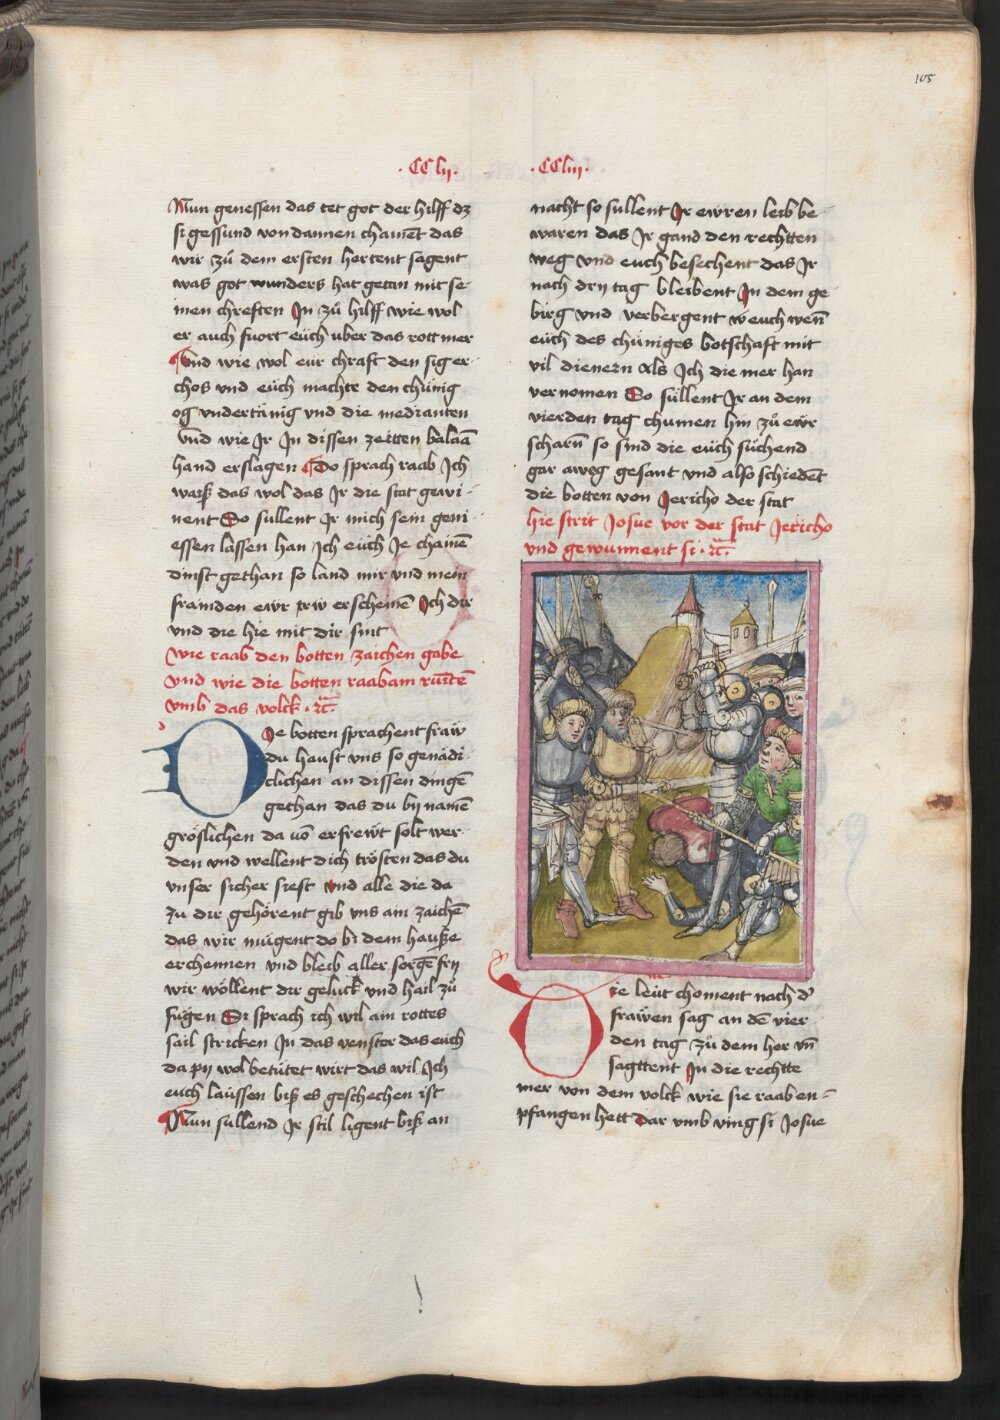 105
·CClii·
Nun genessen das tet got der hilff dz
si gessund von dannen chament das
wir zů dem ersten hertent sagent
was got wunders hat getan mit se-
inen chreften In zů hilff wie wol
er auch fuort eüch uber das rott mer
Und wie wol eür chraft den sig er-
chos und eüch machte den chünig
og undertänig und die medianten
Und wie Ir In dissen zeitten balaā
hand erslagen Do sprach raab Ich
warß das wol das Ir die stat gewi-
nent So sullent Ir mich sein geni-
essen lassen han Ich eüch Ie chainē
dinst gethan so land mir und mein
frainden ewr trw erscheinē Ich dir
und die hie mit dir sint
wie raab den botten zaichen gabe
Und wie die botten raabam
umb das volck · ꝛc̄ ·
Die botten sprachent fraw
du haust uns so genädi-
clichen an dissen dingē
gethan das du bij namē
gröslichen da vō erfrewt solt wer-
den und wellent dich trösten das du
unser sicher siest und alle die da
zu dir gehörent gib uns ain zaichē
das wir mügent do bi dem hauße
erchennen und bleib aller sorgē frij
wir wöllent dir gelück und hail zů
fügen Si sprach ich wil ain rottes
sail stricken In das venster das euch
da pij wol betütet wirt das wil Ich
euch laussen biß es geschechen ist
Nun sullend Ir stil ligent biß an
·CCliii·
nacht so sullent Ir ewren leib be-
waren das Ir gand den rechtten
weg und euch besechent das Ir
nach drij tag bleibent In dem ge
birg und verbergent euch wen̄
eüch des chüniges botschaft mit
vil dienern Als Ich die mer han
vernomen So süllent Ir an dem
vierden tag chumen hin zů ewr
scharn̄ so sind die euch süchend
gar aweg gesant und also schiedēt
die botten von Jericho der stat
hie strit Josue vor der stat Jericho
und gewunnent si · ꝛc̄ ·
Die leüt choment nach d'
frawen sag an dē vier
den tag zů dem her un̄
sagttent In die rechtte
mer von dem volck wie sie raab en-
pfangen hett Dar umb ving si Josue